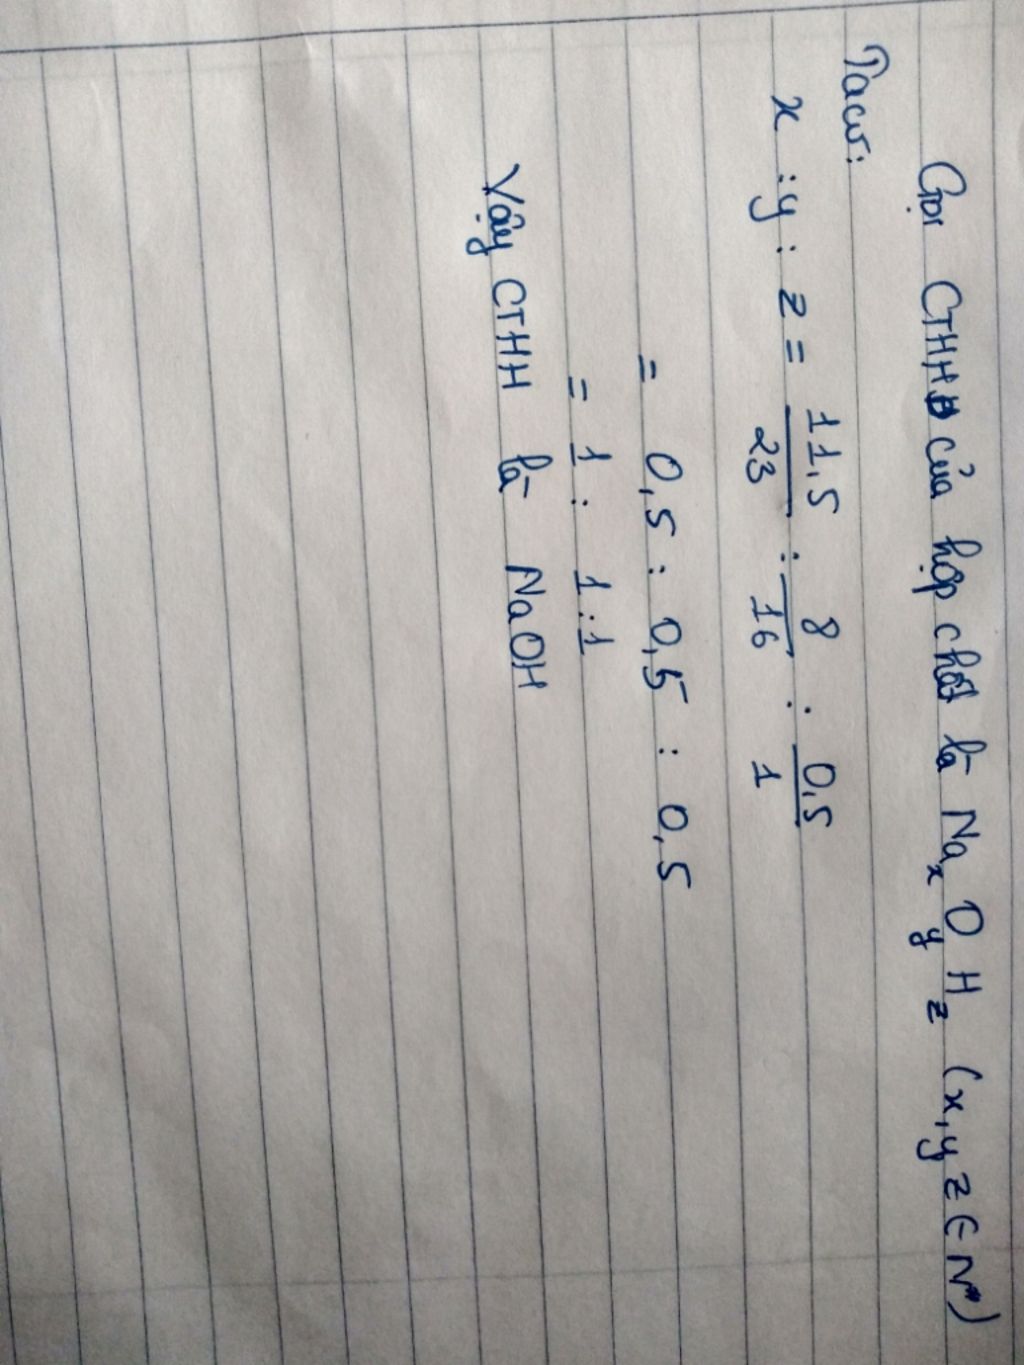 Gọi CTHH của hợp chất là NaxOyHz (x,y z ∈ N*)
Ta có:
x : y : z = 11,5/23 : 8/16 : 0,5/1
= 0,5 : 0,5 : 0,5
= 1 : 1 : 1
Vậy CTHH là NaOH